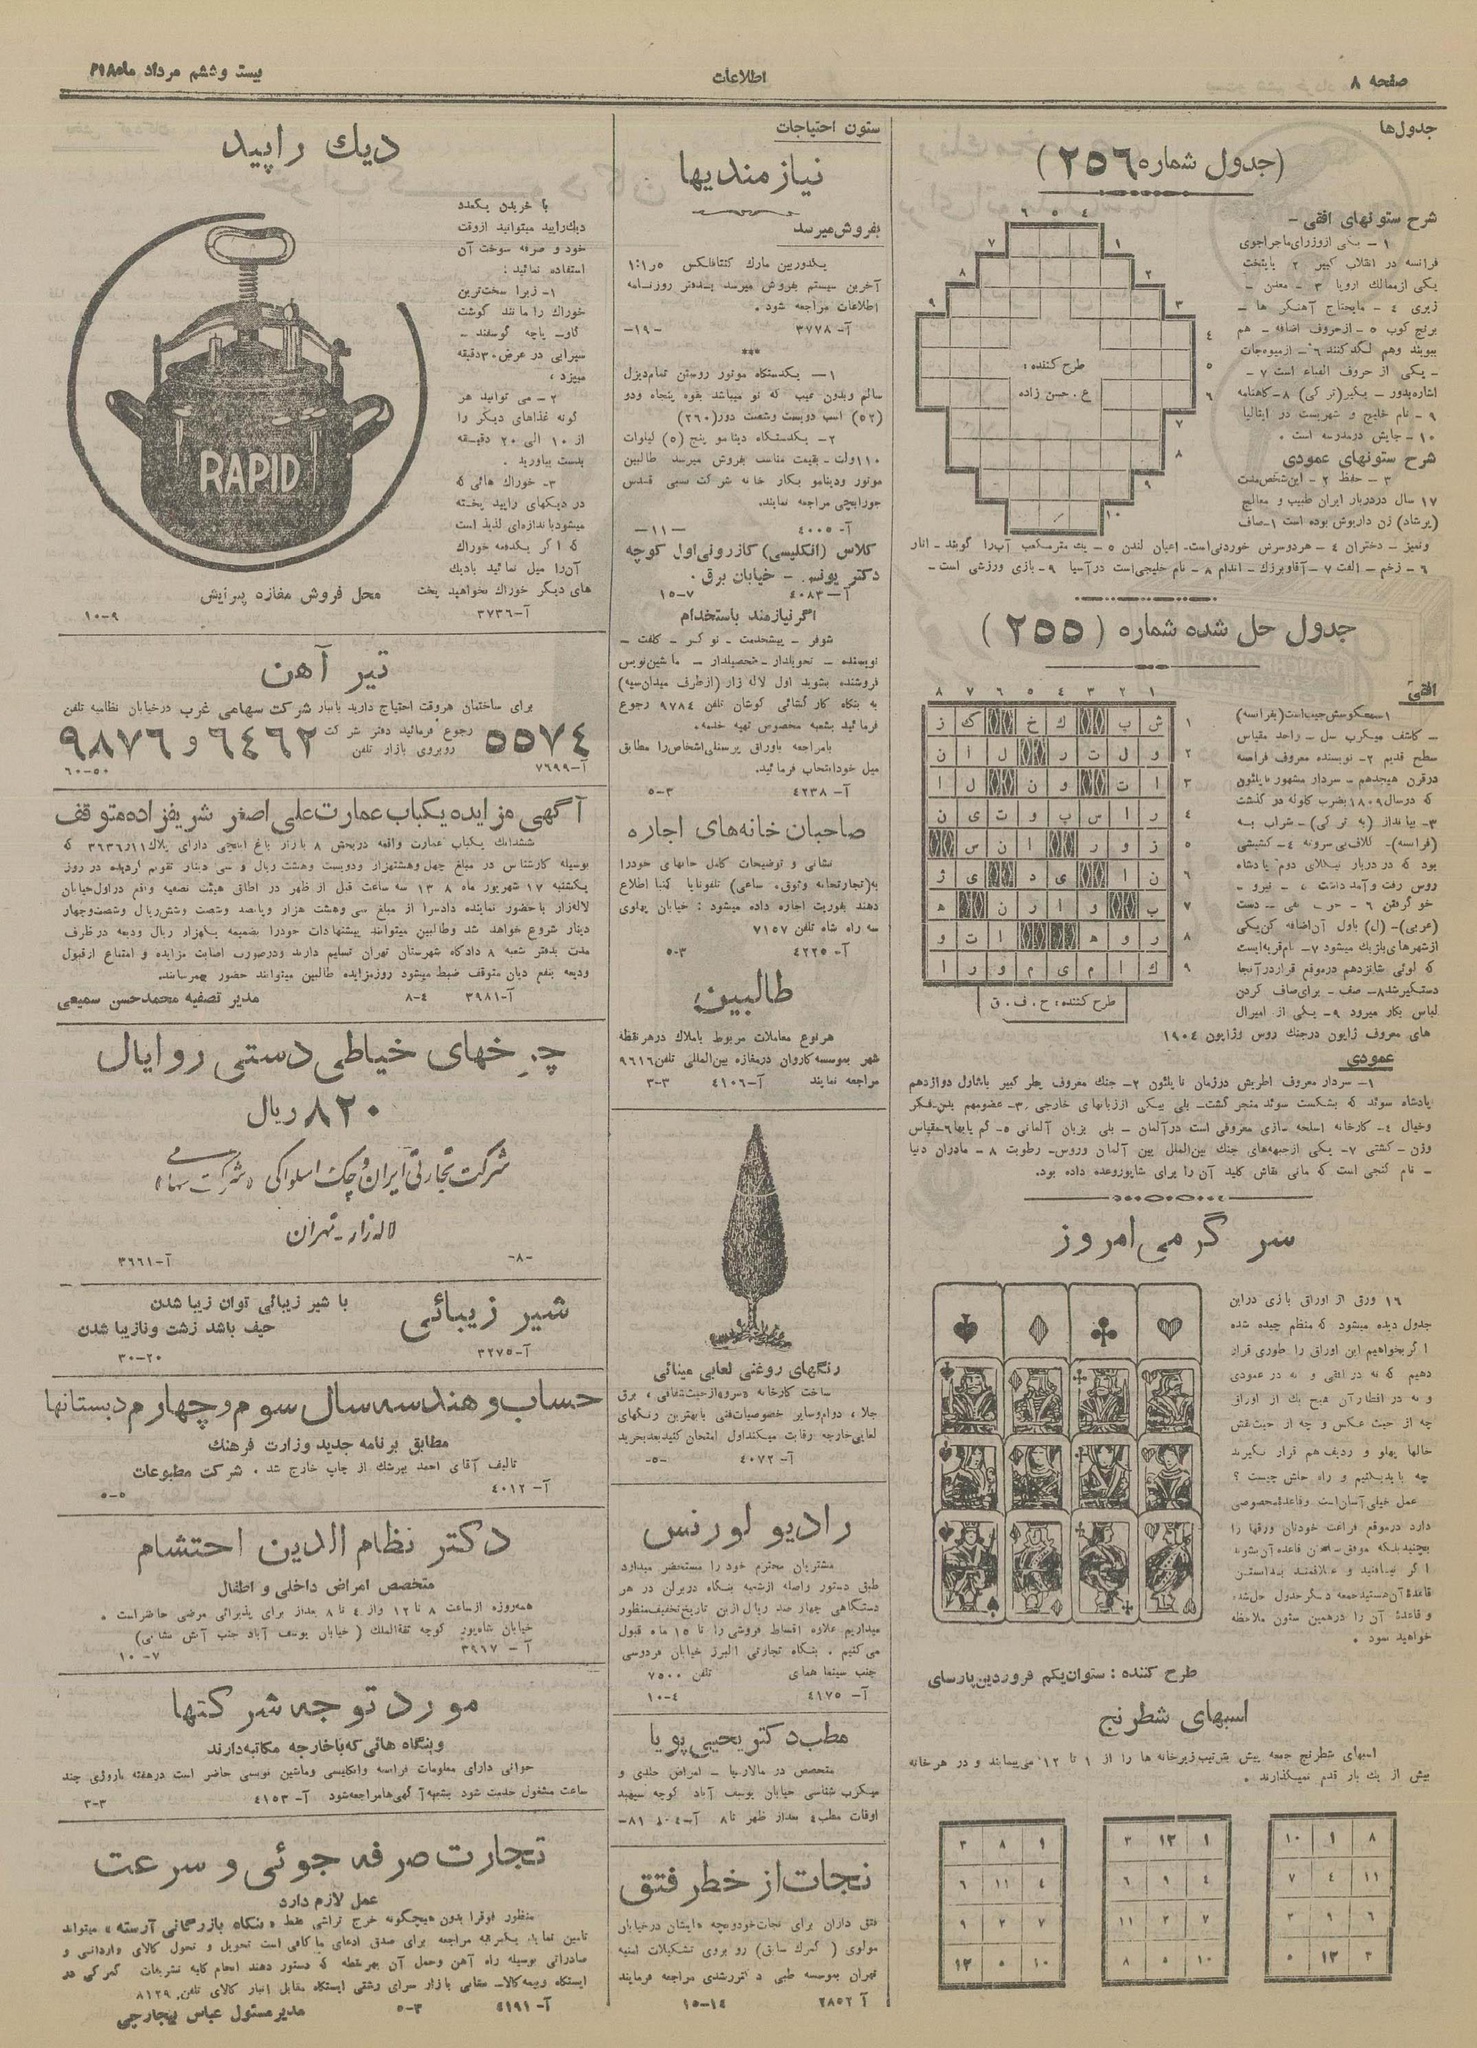 صفحه ۸
اطلاعات
بیست و ششم مرداد ماه
جدول‌ها
(جدول شماره ۲۵۶)
شرح ستونهای افقی -
۱ - یکی از وزرای ماجراجوی
فرانسه در انقلاب کبیر ۲ پایتخت
یکی از ممالک اروپا ۳ - معدن -
زیری ٤ - مایحتاج آهنگر ها -
برنج کوب ۵ - از حروف اضافه - هم
ببویند وهم لگد کنند ٦ - از میوه‌جات
- یکی از حروف الفباء است ۷ -
اشاره بدور - بگیر (ترکی) ۸ - گاهنامه
۹ - نام خلیج و شهریست در ایتالیا
۱۰ - جایش در مدرسه است .
شرح ستونهای عمودی
۳ - حفظ ۲ - این شخص مدت
۱۷ سال در دربار ایران طبیب و معالج
(پرشاد) زن داریوش بوده است ۱ - صاف
وتمیز - دختران ٤ - هر دو سرش خوردنی است - اعیان لندن ۵ - یک متر مکعب آب را گویند - انار
٦ - زخم - الفت ۷ - آقا و بزرگ - اندام ۸ - نام خلیجی است در آسیا ۹ - بازی ورزشی است -
طرح کننده :
ع . حسن زاده
جدول حل شده شماره (۲۵۵)
افقی
- کاشف میکرب سل - واحد مقیاس
سطح قدیم ۲ - نویسنده معروف فرانسه
در قرن هیجدهم - سردار مشهور ناپلئون
که در سال ۱۸۰۹ بضرب گلوله در گذشت
۳ - بیانداز (به ترکی) - شراب به
(فرانسه) - کلاف بی سروته ٤ - کشیشی
بود که در دربار نیکلای دوم پادشاه
(عربی) - (ل) باول آن اضافه کن یکی
از شهرهای بلژیک میشود ۷ - نام قریه ایست
که لوئی شانزدهم در موقع فرار در آنجا
دستگیر شد ۸ - صف - برای صاف کردن
لباس بکار میرود ۹ - یکی از امیرال
های معروف ژاپون در جنگ روس و ژاپون ۱۹۰٤
طرح کننده : ح . ف . ق
عمودی
۱ - سردار معروف اطریش در زمان ناپلئون ۲ - جنگ معروف پطر کبیر با شارل دوازدهم
پادشاه سوئد که بشکست سوئد منجر گشت - بلی بیکی از زبانهای خارجی ۳ - عضو مهم بدن - فکر
وخیال ٤ - کارخانه اسلحه سازی معروفی است در آلمان - بلی بزبان آلمانی ۵ - کم یابها ٦ - مقیاس
وزن - کشتی ۷ - یکی از جبهه‌های جنگ بین‌الملل بین آلمان وروس - رطوبت ۸ - مادران دنیا
- نام گنجی است که مانی نقاش کلید آن را برای شاپور وعده داده بود .
سر گرمی امروز
۱٦ ورق از اوراق بازی در این
جدول دیده میشود که منظم چیده شده
اگر بخواهیم این اوراق را طوری قرار
دهیم که نه در افقی و نه در عمودی
و نه در اقطار آن هیچ یک از اوراق
چه از حیث عکس و چه از حیث نقش
خالها پهلو و ردیف هم قرار نگیرند
چه باید بکنیم و راه حلش چیست ؟
عمل خیلی آسان است وقاعدۀ مخصوصی
دارد در موقع فراغت خودتان ورقها را
اگر نیافتید و علاقمند بدانستن
قاعدۀ آن هستید جمعه دیگر جدول حل شده
و قاعدۀ آن را در همین ستون ملاحظه
خواهید نمود .
طرح کننده : ستوان یکم فروردین پارسای
اسبهای شطرنج
اسبهای شطرنج جمعه پیش بترتیب زیر خانه ها را از ۱ تا ۱۲ می‌پیمایند و در هر خانه
بیش از یک بار قدم نمیگذارند .
۱۰ ۱ ۸
۷ ٤ ۱۱
۳ ۹ ٦
۵ ۱۲ ۲
۳ ۱۲ ۱
٦ ۹ ٤
۱۱ ۲ ۷
۸ ۵ ۱۰
۳ ۸ ۹
٦ ۱۱ ٤
۹ ۲ ۷
۱۲ ۵ ۱۰
ستون احتیاجات
نیازمندیها
بفروش میرسد
یکدوربین مارک کنتافلکس
آخرین سیستم بفروش میرسد بدفتر روزنامه
اطلاعات مراجعه شود .
آ- ۳۷۷۸ -۱۹-
۱ - یکدستگاه موتور روستن تمام دیزل
سالم وبدون عیب که نو میباشد بقوه پنجاه ودو
(۵۲) اسب دویست وشصت دور (۲٦۰)
۲ - یکدستگاه دینامو پنج (۵) کیلوات
۱۱۰ ولت - بقیمت مناسب بفروش میرسد طالبین
موتور ودینامو بکار خانه شرکت نسبی قدس
جورابچی مراجعه نمایند.
آ- ٤۰۰۵ -۱۱-
کلاس (انگلیسی) کازرونی اول کوچه
دکتر یونس - خیابان برق .
آ- ٤۰۸۳ ۱۵-۷
اگر نیازمند باستخدام
شوفر - پیشخدمت - نوکر - کلفت -
نویسنده - تحویلدار - تحصیلدار - ماشین نویس
فروشنده بشوید اول لاله زار (از طرف میدان سپه)
به بنگاه کار گشائی کوشان تلفن ۹۷۸٤ رجوع
فرمائید بشعبه مخصوص تهیه خدمه .
بامراجعه باوراق پرسنلی اشخاص را مطابق
میل خود انتخاب فرمائید.
آ- ٤۲۳۸ ۵-۳
صاحبان خانه های اجاره
نشانی و توضیحات کامل خانهای خود را
به (تجارتخانه وثوق - ساعی) تلفونا یا کتبا اطلاع
دهند بفوریت اجاره داده میشود : خیابان پهلوی
سه راه شاه تلفن ۷۱۵۷
آ- ٤۲۲۵ ۵-۳
طالبین
هر نوع معاملات مربوط باملاک در هر نقطه
شهر بموسسه کاروان در مغازه بین المللی تلفن ۹٦۱٦
مراجعه نمایند آ- ٤۱۰٦ ۳-۳
رنگهای روغنی لعابی مینائی
ساخت کارخانه «سرو» از حیث شفافی ، برق
جلا ، دوام وسایر خصوصیات فنی با بهترین رنگهای
لعابی خارجه رقابت میکند اول امتحان کنید بعد بخرید
آ- ٤۰۷۲ -۵-
رادیو لورنس
مشتریان محترم خود را مستحضر میدارد
طبق دستور واصله از شعبه بنگاه در برلن در هر
دستگاهی چهار صد ریال از این تاریخ تخفیف منظور
میداریم علاوه اقساط فروشی را تا ۱۵ ماه قبول
می کنیم . بنگاه تجارتی البرز خیابان فردوسی
جنب سینما همای تلفن ۷۵۰۰
آ- ٤۱۷۵ ۱۰-٤
مطب دکتر یحیی پویا
متخصص در مالاریا - امراض جلدی و
میکرب شناسی خیابان یوسف آباد کوچه سپهبد
نجات از خطر فتق
فتق داران برای نجات خود بوچه در خیابان
مولوی (گمرک سابق) روبروی تشکیلات امنیه
تهران بموسسه طبی دکتر رشدی مراجعه فرمایند
آ ۲۸۵۲ ۱۵-۱٤
دیک راپید
با خریدن یکعدد
دیک راپید میتوانید از وقت
خود و صرفه سوخت آن
استفاده نمائید :
۱ - زیرا سخت ترین
خوراک را مانند گوشت
گاو - پاچه گوسفند -
سیرابی در عرض ۳۰ دقیقه
میپزد ،
۲ - می توانید هر
گونه غذاهای دیگر را
از ۱۰ الی ۲۰ دقیقه
بدست بیاورید .
۳ - خوراک هائی که
در دیکهای راپید پخته
میشود باندازه‌ای لذیذ است
که اگر یکدفعه خوراک
آن را میل نمائید بادیک
های دیگر خوراک نخواهید پخت
RAPID
محل فروش مغازه پیرایش
آ- ۳۷۳٦ ۱۰-۹
تیر آهن
برای ساختمان هر وقت احتیاج دارید بانبار شرکت سهامی غرب در خیابان نظامیه تلفن
۵۵۷٤ رجوع فرمائید دفتر شرکت روبروی بازار تلفن ٦٤٦۲ و ۹۸۷٦
آ- ۷٦۹۹ ٦۰-۵۰
آگهی مزایده یکباب عمارت علی اصغر شریفزاده متوقف
ششدانک یکباب عمارت واقعه در بخش ۸ بازار باغ ایلچی دارای پلاک
بوسیله کارشناس در مبلغ چهل وهشتهزار ودویست وهشت ریال و سی دینار تقویم گردیده در روز
یکشنبه ۱۷ شهریور ماه سه ساعت قبل از ظهر در اطاق هیئت تصفیه واقع در اول خیابان
لاله‌زار با حضور نماینده دادسرا از مبلغ سی وهشت هزار و پانصد وشصت وشش ریال وشصت وچهار
دینار شروع خواهد شد وطالبین میتوانند پیشنهادات خود را بضمیمه یکهزار ریال ودیعه در ظرف
مدت بدفتر شعبه ۸ دادگاه شهرستان تهران تسلیم دارند و در صورت اصابت مزایده و امتناع از قبول
ودیعه بنفع دیان متوقف ضبط میشود روز مزایده طالبین میتوانند حضور بهمرسانند.
آ- ۳۹۸۱ ۸-٤ مدیر تصفیه محمد حسن سمیعی
چرخهای خیاطی دستی روایال
۸۲۰ ریال
شرکت تجارتی ایران و چک اسلواکی «شرکت سهامی»
لاله زار - تهران
-۸- آ- ۳٦٦۱
شیر زیبائی
با شیر زیبائی توان زیبا شدن
حیف باشد زشت ونازیبا شدن
آ- ۳۲۷۵ ۳۰-۲۰
حساب و هندسه سال سوم و چهارم دبستانها
مطابق برنامه جدید وزارت فرهنگ
تالیف آقای احمد بیرشک از چاپ خارج شد . شرکت مطبوعات
آ- ٤۰۱۲ ۵-۵
دکتر نظام الدین احتشام
متخصص امراض داخلی و اطفال
همه روزه از ساعت ۸ تا ۱۲ و از ٤ تا ۸ بعد از برای پذیرائی مرضی حاضر است .
خیابان شاهپور کوچه ثقةالملک (خیابان یوسف آباد جنب آتش نشانی)
آ- ۳۹٦۷ ۱۰-۷
مورد توجه شرکتها
وبنگاه هائی که با خارجه مکاتبه دارند
جوانی دارای معلومات فرانسه وانگلیسی وماشین نویسی حاضر است در هفته یا روزی چند
ساعت مشغول خدمت شود بشعبه آگهی ها مراجعه شود آ- ٤۱۵۳ ۳-۳
تجارت صرفه جوئی و سرعت
عمل لازم دارد
منظور فوق را بدون هیچگونه خرج تراشی فقط «بنگاه بازرگانی آرسته» میتواند
تأمین نماید یکمرتبه مراجعه برای صدق ادعای ما کافی است تحویل و تحول کالای وارداتی و
صادراتی بوسیله راه آهن وحمل آن بهر نقطه که دستور دهند انجام کلیه تشریفات گمرکی در
ایستگاه وبیمه کالا - نشانی بازار سرای رشتی ایستگاه مقابل انبار کالای تلفن ۸۱۲۹
آ- ٤۱۹۱ ۵-۳ مدیر مسئول عباس بیجارچی